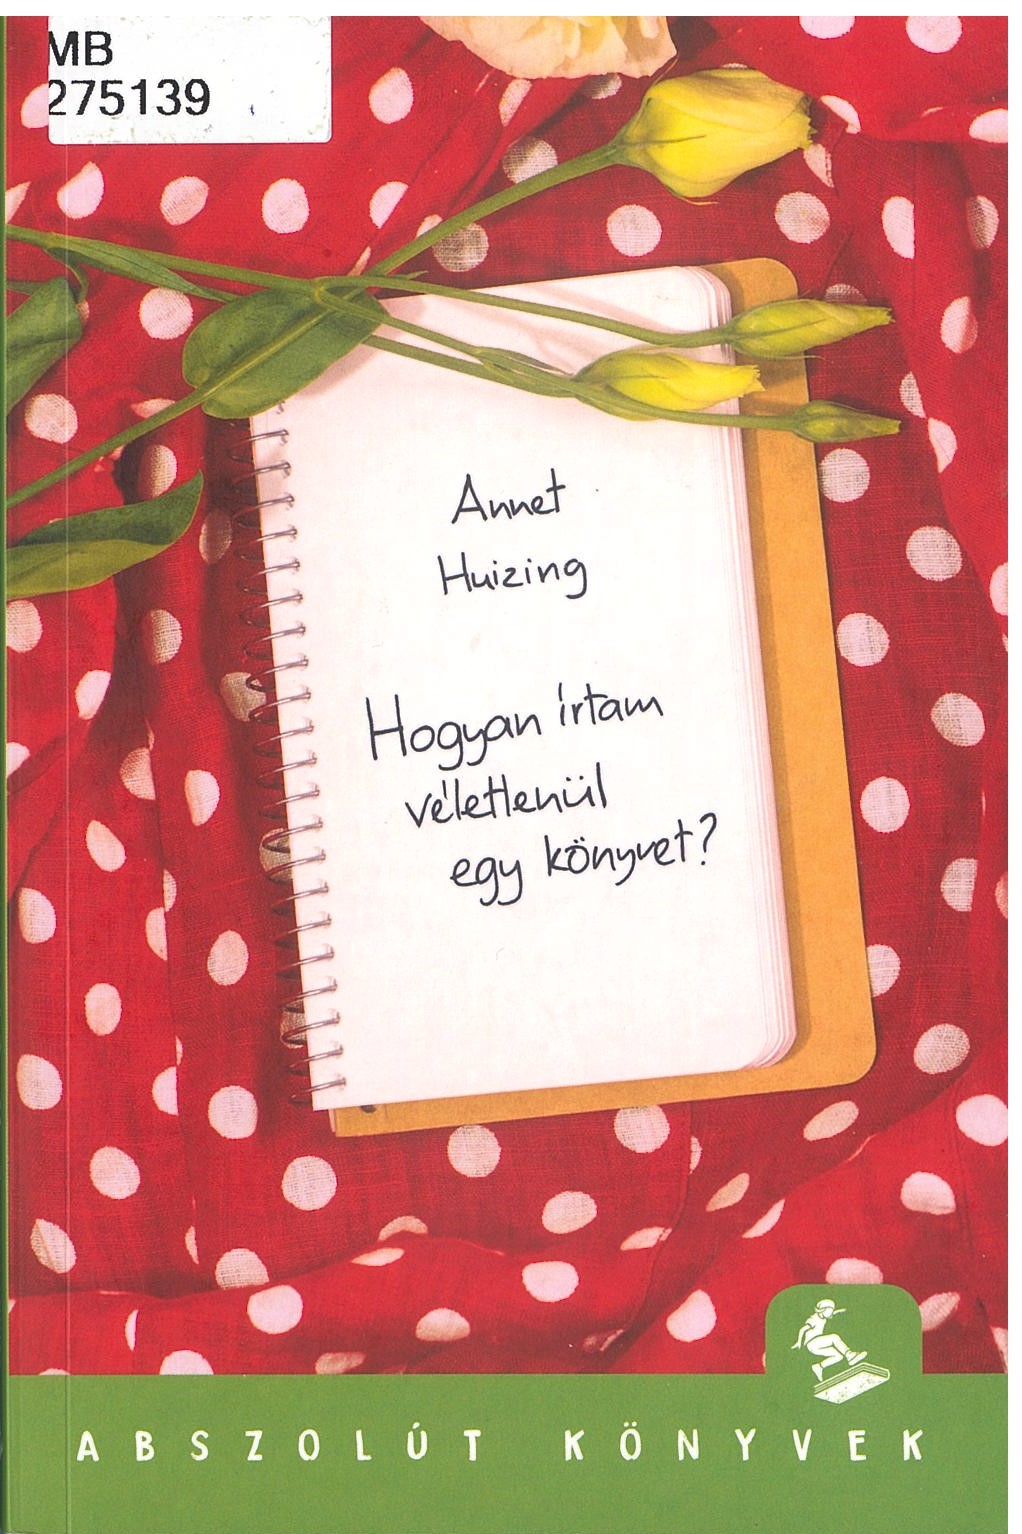 MB
275139
Annet
Huizing
Hogyan írtam
véletlenül
egy könyvet?
ABSZOLÚT KÖNYVEK